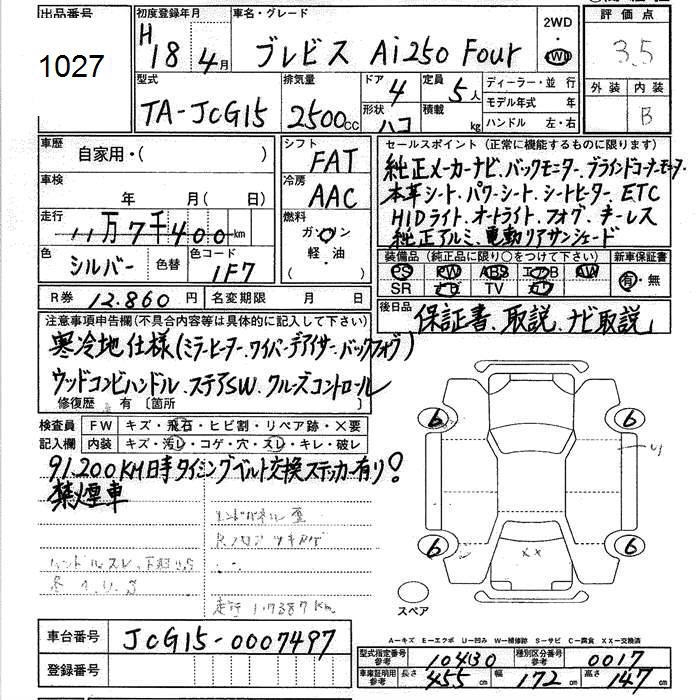 出品番号
1027
初度登録年月
H
18 4月
車名・グレード
ブレビス Ai250 Four
2WD
4WD
評価点
3.5
外装 内装
B
型式
TA-JCG15
排気量
2500cc
ドア
4
形状
ハコ
定員
5人
積載
kg
ディーラー・並行
モデル年式 年
ハンドル 左・右
車歴
自家用・( )
車検
年 月( 日)
走行
11万7千400km
色
シルバー
色替
色コード
1F7
R券 12.860円
名変期限 月 日
シフト
FAT
冷房
AAC
燃料
ガソリン
軽油
( )
セールスポイント(正常に機能するものに限ります)
純正メーカーナビ、バックモニター、ブラインドコーナーモニター
本革シート、パワーシート、シートヒーター ETC
HIDライト、オートライト、フォグ、キーレス
純正アルミ、電動リアサンシェード
装備品(純正品に限り○をつけて下さい)
PS PW ABS エアB AW
SR ナビ TV カワ
新車保証書
有・無
後日品
保証書、取説、ナビ取説
注意事項申告欄(不具合内容等は具体的に記入して下さい)
寒冷地仕様(ミラーヒーター、ワイパーデアイサー、バックフォグ)
ウッドコンビハンドル、ステアSW、クルーズコントロール
修復歴 有 〔箇所
検査員
記入欄
FW キズ・飛石・ヒビ割・リペア跡・×要
内装 キズ・汚レ・コゲ・穴・スレ・キレ・破レ
91.200KM時タイミングベルト交換ステッカー有り!
禁煙車
走行 117387km
6 6
6 6
××
スペア
A=キズ E=エクボ U=凹み W=補修跡 S=サビ C=腐食 XX=交換済
車台番号
JCG15-0007497
登録番号
型式指定番号
参考
10430
種別区分番号
参考
0017
車庫証明用
参考
長さ 455cm
幅 172cm
高さ 147cm